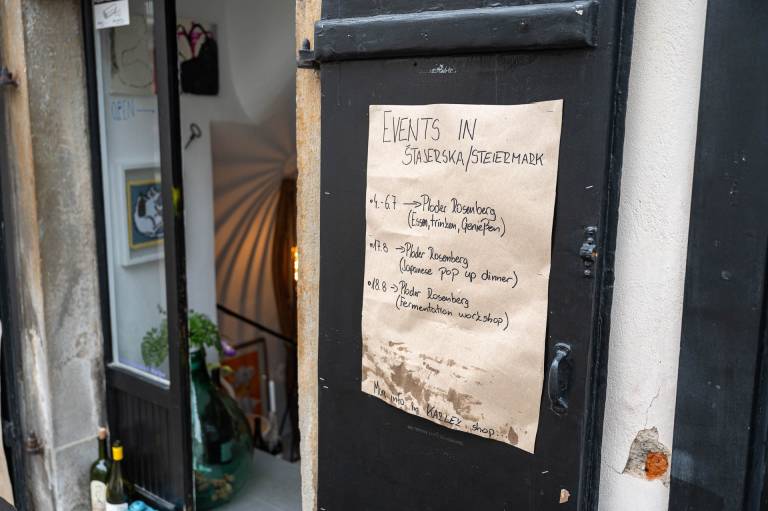 OPEN
EVENTS IN
ŠTAJERSKA/STEIERMARK
• 4.-6.7 → Ploder Rosenberg
(Essen, trinken, Genießen)
• 17.8 → Ploder Rosenberg
(Japanese pop up dinner)
• 18.8 → Ploder Rosenberg
(Fermentation workshop)
info shop